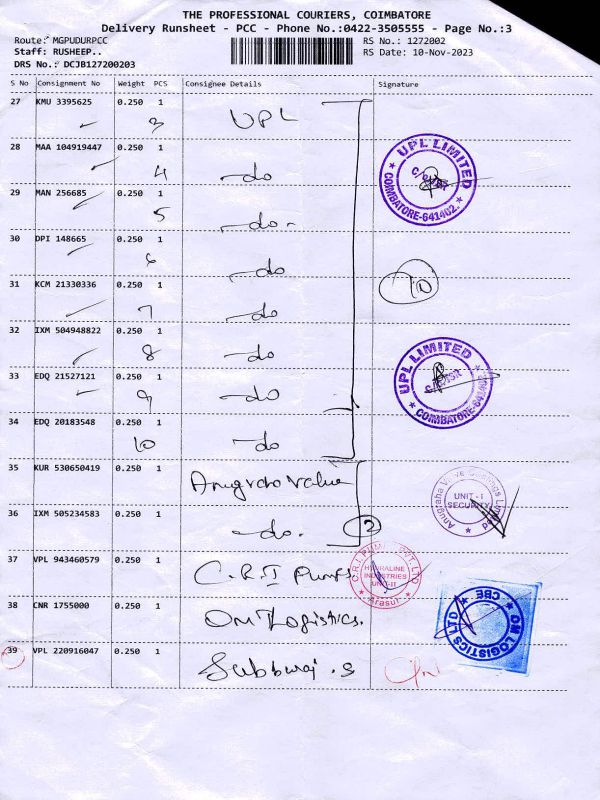 THE PROFESSIONAL COURIERS, COIMBATORE
Delivery Runsheet - PCC - Phone No.:0422-3505555 - Page No.:3
Route: MGPUDURPCC RS No.: 1272002
Staff: RUSHEEP.. RS Date: 10-Nov-2023
DRS No.: DCJB127200203
S No Consignment No Weight PCS Consignee Details Signature
27 KMU 3395625 0.250 1 UPL
3
28 MAA 104919447 0.250 1
4 -do
UPL LIMITED
COIMBATORE-641402.
29 MAN 256685 0.250 1
5 -do-
30 DPI 148665 0.250 1
6 -do
31 KCM 21330336 0.250 1
7 -do
10
32 IXM 504948822 0.250 1
8 -do
UPL LIMITED
COIMBATORE-641402
33 EDQ 21527121 0.250 1
9 -do
34 EDQ 20183548 0.250 1
10 -do
35 KUR 530650419 0.250 1 Anugraha Valve
UNIT - I
SECURITY
36 IXM 505234583 0.250 1
-do. 2
37 VPL 943460579 0.250 1 C.R.I Pumps
C.R.I. PUMPS PVT LTD
HYDRALINE
INDUSTRIES
UNIT-II
Arasur
38 CNR 1755000 0.250 1 OM Logistics.
OM LOGISTICS LTD
CBE
39 VPL 220916047 0.250 1 Subburaj .S